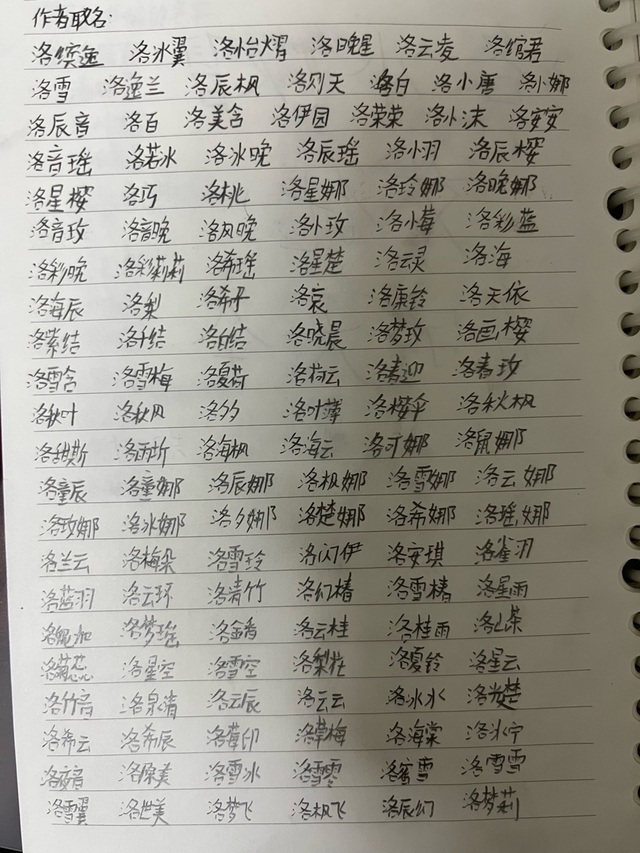 作者取名:
洛缤逸 洛冰翼 洛怡熠 洛晚星 洛云凌 洛绾君
洛雪 洛逸兰 洛辰枫 洛则天 洛白 洛小唐 洛小娜
洛辰音 洛百 洛美含 洛伊园 洛荣荣 洛小沫 洛安安
洛音瑶 洛若冰 洛冰晚 洛辰瑶 洛小羽 洛辰樱
洛星樱 洛巧 洛桃 洛星娜 洛玲娜 洛晚娜
洛音玫 洛音晚 洛风晚 洛小玫 洛小莓 洛彩蓝
洛彩晚 洛彩莉莉 洛希瑶 洛星楚 洛云灵 洛海
洛海辰 洛梨 洛希子 洛哀 洛康铃 洛天依
洛素结 洛千结 洛白结 洛晓晨 洛梦玫 洛画樱
洛雪含 洛雪梅 洛夏荷 洛荷云 洛春迎 洛春玫
洛秋叶 洛秋风 洛夕 洛叶薄 洛樱伞 洛秋枫
洛甜斯 洛雨斤 洛海枫 洛海云 洛可娜 洛鼠娜
洛童辰 洛童娜 洛辰娜 洛枫娜 洛雪娜 洛云娜
洛玫娜 洛冰娜 洛夕娜 洛楚娜 洛希娜 洛瑶娜
洛兰云 洛梅朵 洛雪玲 洛闪伊 洛安琪 洛雀羽
洛蓝羽 洛云环 洛青竹 洛幻椿 洛雪椿 洛星雨
洛 加 洛梦瑶 洛金香 洛云桂 洛桂雨 洛山茶
洛菊蕊 洛星空 洛雪空 洛梨花 洛夏铃 洛星云
洛竹音 洛泉清 洛云辰 洛云云 洛冰冰 洛光楚
洛希云 洛希辰 洛莓印 洛草梅 洛海棠 洛冰宁
洛夜音 洛原美 洛雪冰 洛雪零 洛蜜雪 洛雪雪
洛雪翼 洛世美 洛梦飞 洛枫飞 洛辰幻 洛梦莉